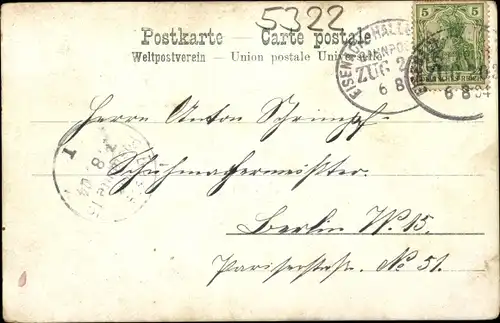 5322
Postkarte — Carte postale
Weltpostverein — Union postale Universelle
5
EISENACH HALLE
BAHNPOST
ZUG 2
6 8
6 8 04
Herrn Anton Schrimpf
Schuhmachermeister
Berlin W. 15.
Pariserstraße. No 51.